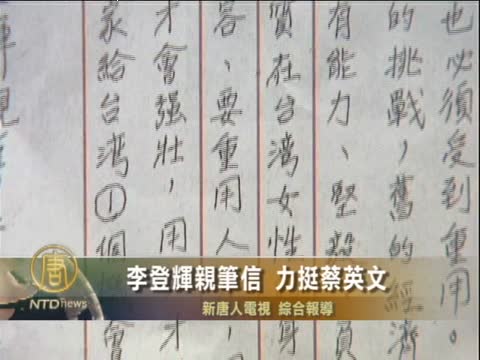 也必須受到重用。
的挑戰,舊的經濟
有能力、堅毅
質在台灣女性
容、要重用人
才會强壯,用
家給台灣①個
李登輝親筆信 力挺蔡英文
新唐人電視 綜合報導
唐
NTDnews